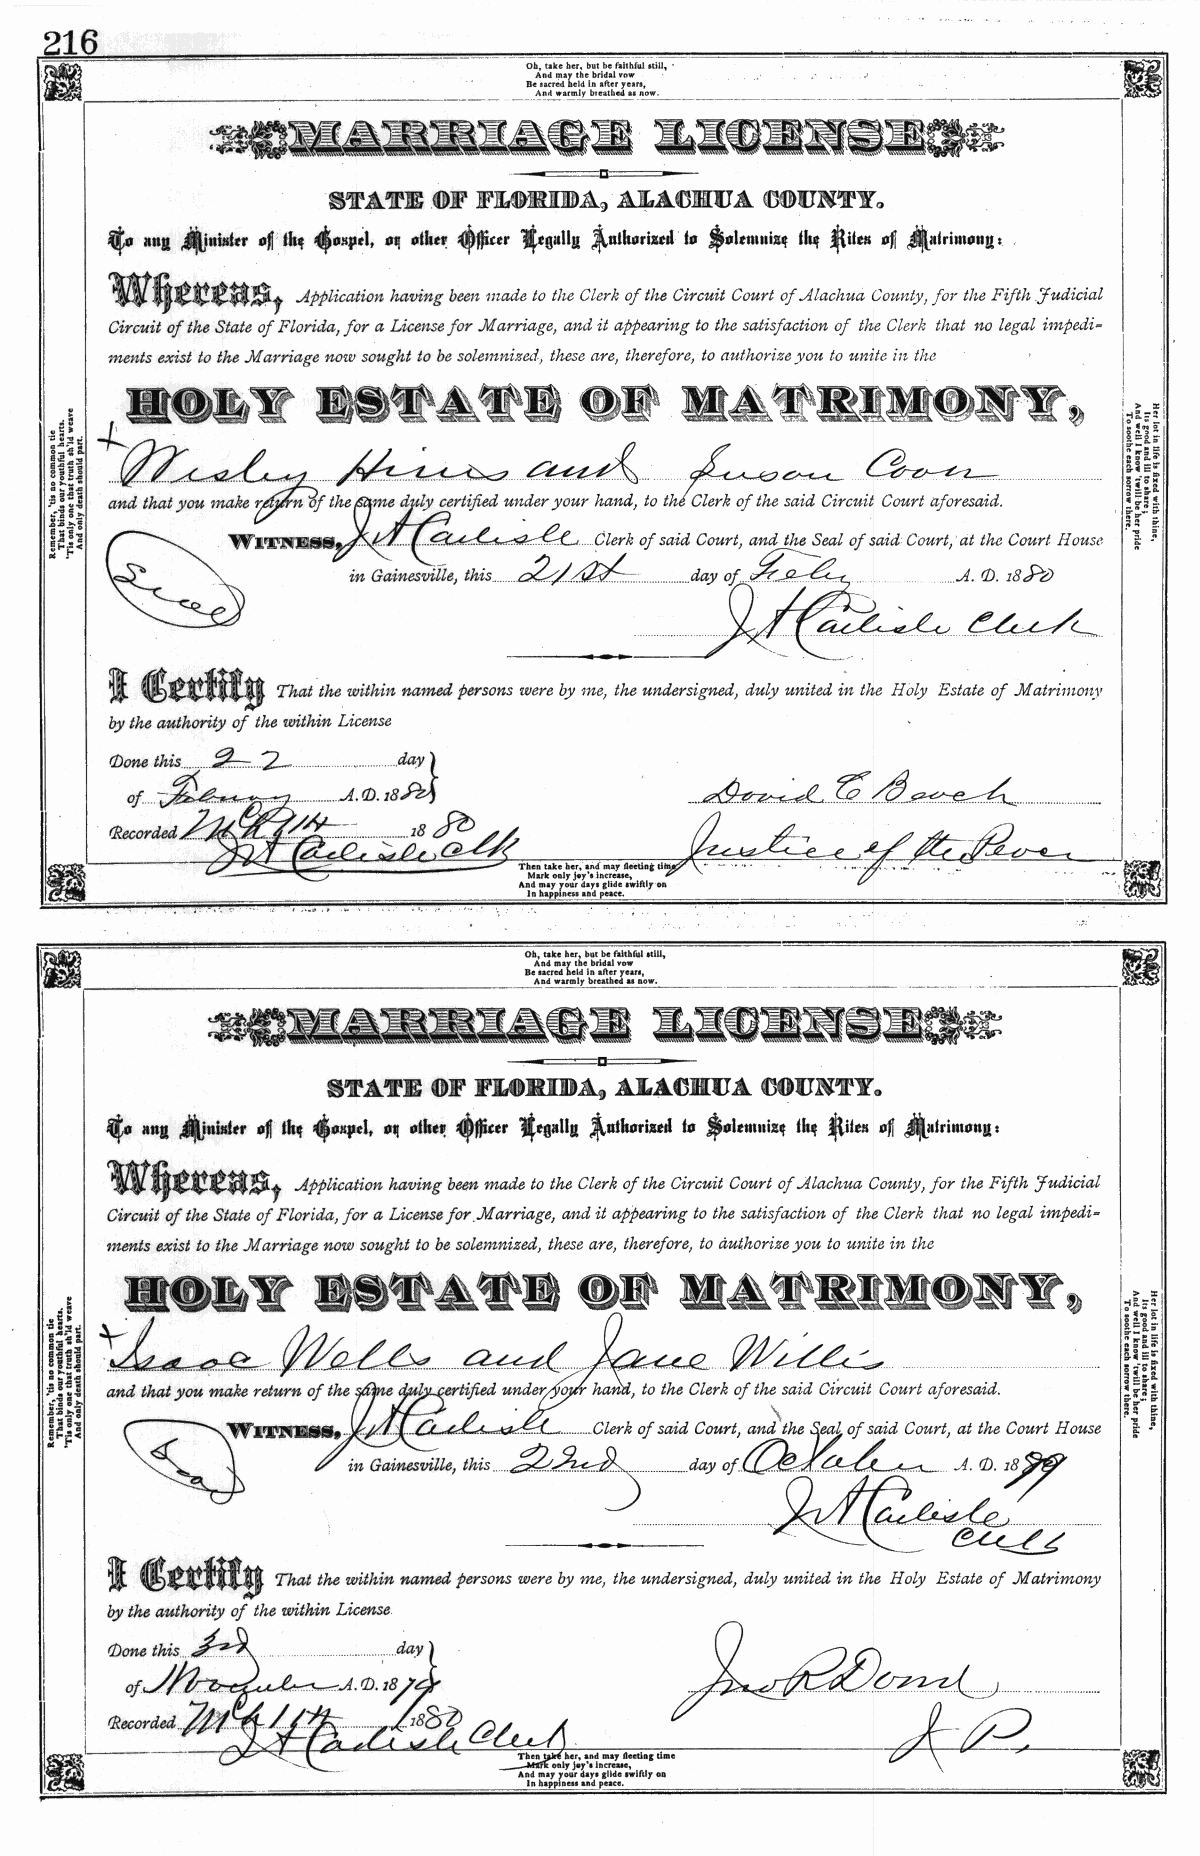 216
Oh, take her, but be faithful still,
And may the bridal vow
Be sacred held in after years,
And warmly breathed as now.
MARRIAGE LICENSE
STATE OF FLORIDA, ALACHUA COUNTY.
To any Minister of the Gospel, or other Officer Legally Authorized to Solemnize the Rites of Matrimony:
Whereas, Application having been made to the Clerk of the Circuit Court of Alachua County, for the Fifth Judicial
Circuit of the State of Florida, for a License for Marriage, and it appearing to the satisfaction of the Clerk that no legal impedi-
ments exist to the Marriage now sought to be solemnized, these are, therefore, to authorize you to unite in the
HOLY ESTATE OF MATRIMONY,
Wesley Hines and Susan Coon
and that you make return of the same duly certified under your hand, to the Clerk of the said Circuit Court aforesaid.
WITNESS, J A Carlisle Clerk of said Court, and the Seal of said Court, at the Court House
Seal
in Gainesville, this 21st day of Feby A. D. 1880
J A Carlisle Clerk
I Certify That the within named persons were by me, the undersigned, duly united in the Holy Estate of Matrimony
by the authority of the within License
Done this 22 day
of Februay A. D. 1880
David C Beach
Recorded Mch 14 1880
J A Carlisle Clk
Justice of the Peace
Then take her, and may fleeting time
Mark only joy's increase,
And may your days glide swiftly on
In happiness and peace.
Remember, 'tis no common tie
That binds our youthful hearts.
'Tis only one that truth sh'ld weave
And only death should part.
Her lot in life is fixed with thine,
Its good and ill to share;
And well I know 'twill be her pride
To soothe each sorrow there.
Oh, take her, but be faithful still,
And may the bridal vow
Be sacred held in after years,
And warmly breathed as now.
MARRIAGE LICENSE
STATE OF FLORIDA, ALACHUA COUNTY.
To any Minister of the Gospel, or other Officer Legally Authorized to Solemnize the Rites of Matrimony:
Whereas, Application having been made to the Clerk of the Circuit Court of Alachua County, for the Fifth Judicial
Circuit of the State of Florida, for a License for Marriage, and it appearing to the satisfaction of the Clerk that no legal impedi-
ments exist to the Marriage now sought to be solemnized, these are, therefore, to authorize you to unite in the
HOLY ESTATE OF MATRIMONY,
Isaac Wells and Jane Willis
and that you make return of the same duly certified under your hand, to the Clerk of the said Circuit Court aforesaid.
WITNESS, J A Carlisle Clerk of said Court, and the Seal of said Court, at the Court House
Seal
in Gainesville, this 22nd day of October A. D. 1879
J A Carlisle
Clerk
I Certify That the within named persons were by me, the undersigned, duly united in the Holy Estate of Matrimony
by the authority of the within License
Done this 3rd day
of November A. D. 1879
Jno R
Recorded Mch 14 1880
J A Carlisle Clerk
J P.
Then take her, and may fleeting time
Mark only joy's increase,
And may your days glide swiftly on
In happiness and peace.
Remember, 'tis no common tie
That binds our youthful hearts.
'Tis only one that truth sh'ld weave
And only death should part.
Her lot in life is fixed with thine,
Its good and ill to share;
And well I know 'twill be her pride
To soothe each sorrow there.